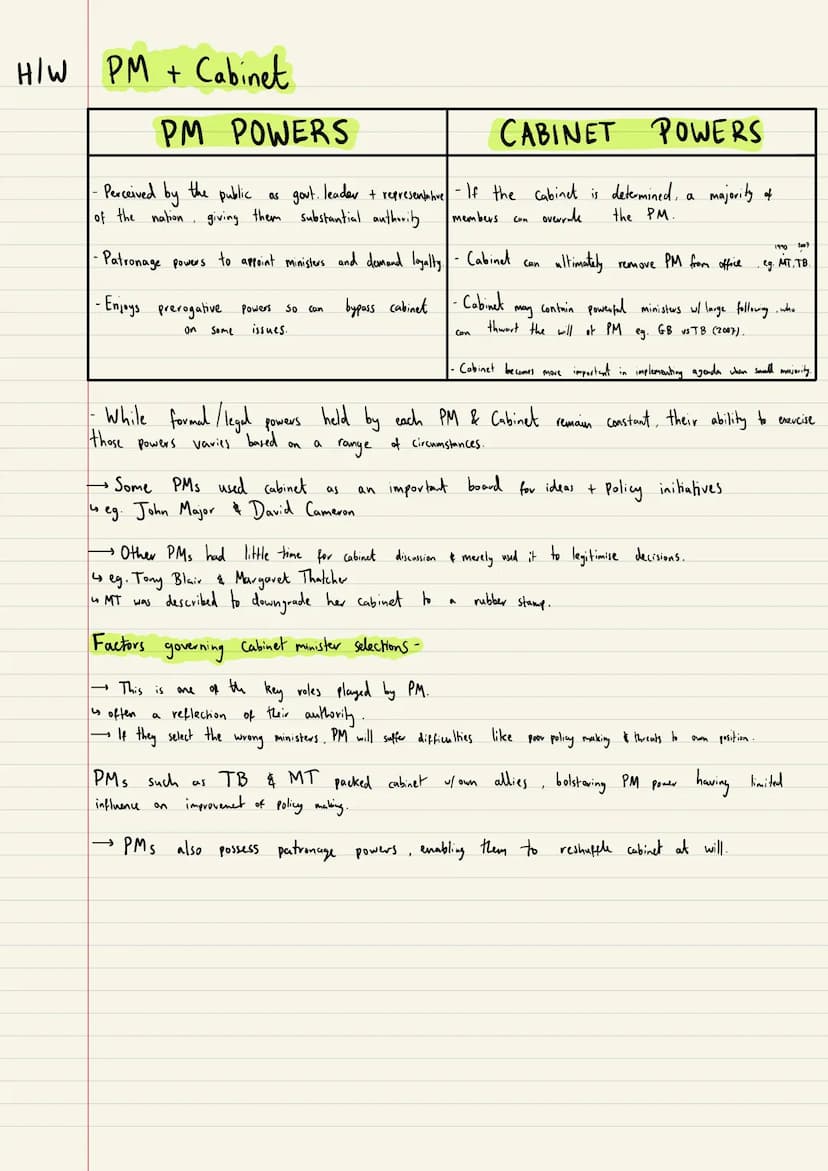 H/W PM + Cabinet
PM POWERS
CABINET POWERS
- Perceived by the public as govt. leader + representative
of the nation, giving them substantial authority
- Patronage powers to appoint ministers and demand loyalty
- Enjoys prerogative powers so can bypass cabinet
on some issues.
- If the cabinet is determined, a majority of
members can overrule the PM.
1990 2007
- Cabinet can ultimately remove PM from office. eg. MT, TB
- Cabinet may contain powerful ministers w/ large following, who
can thwart the will of PM eg. GB vs TB (2007).
- Cabinet becomes more important in implementing agenda when small majority.
- While formal/legal powers held by each PM & Cabinet remain constant, their ability to exercise
those powers varies based on a range of circumstances.
→ Some PMs used cabinet as an important board for ideas + policy initiatives
↳ eg. John Major & David Cameron
→ Other PMs had little time for cabinet discussion & merely used it to legitimise decisions.
↳ eg. Tony Blair & Margaret Thatcher
↳ MT was described to downgrade her cabinet to a rubber stamp.
Factors governing Cabinet minister selections -
→ This is one of the key roles played by PM.
↳ often a reflection of their authority.
→ If they select the wrong ministers, PM will suffer difficulties like poor policy making & threats to own position.
PMs such as TB & MT packed cabinet w/ own allies, bolstering PM power having limited
influence on improvement of policy making.
→ PMs also possess patronage powers, enabling them to reshuffle cabinet at will.